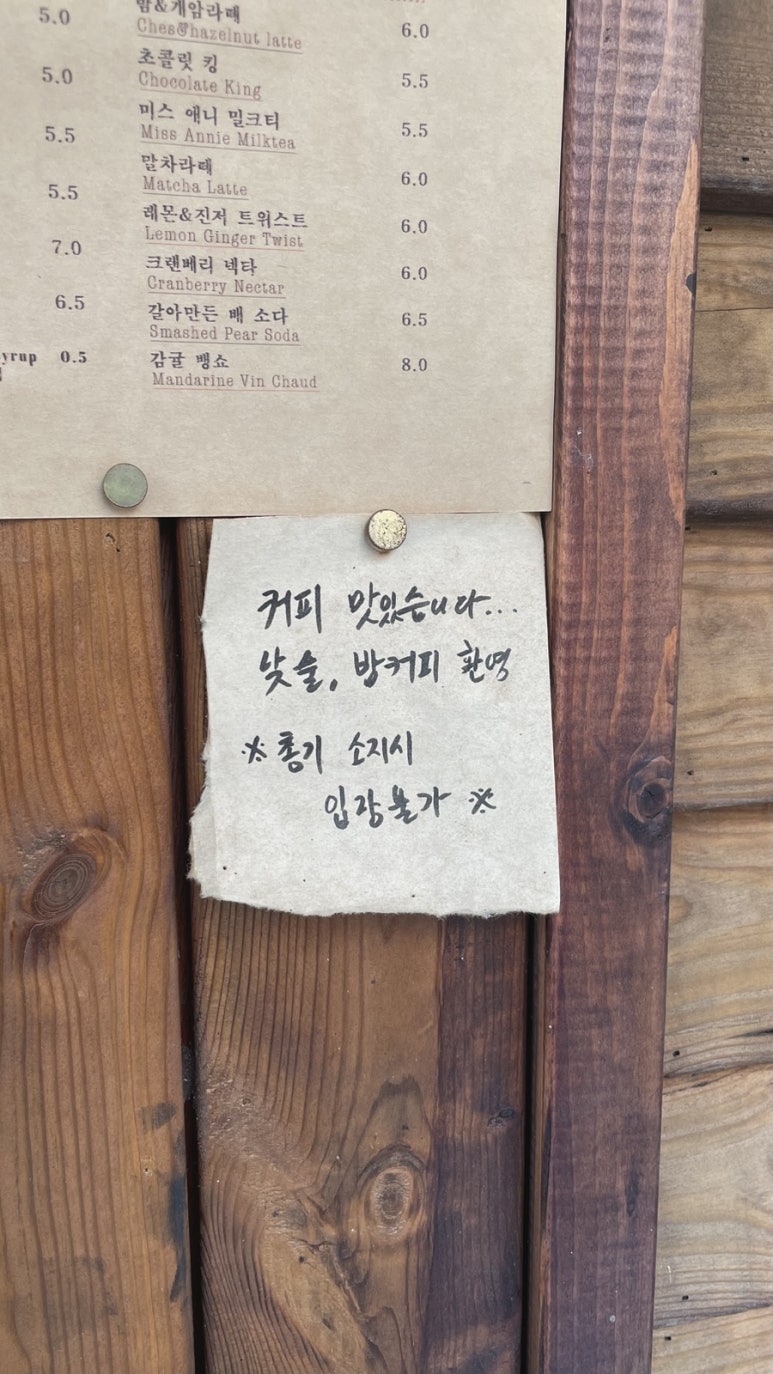 5.0
5.0
5.5
5.5
7.0
6.5
yrup 0.5
밤&개암라떼 6.0
Ches&hazelnut latte
초콜릿 킹 5.5
Chocolate King
미스 애니 밀크티 5.5
Miss Annie Milktea
말차라떼 6.0
Matcha Latte
레몬&진저 트위스트 6.0
Lemon Ginger Twist
크랜베리 넥타 6.0
Cranberry Nectar
갈아만든 배 소다 6.5
Smashed Pear Soda
감귤 뱅쇼 8.0
Mandarine Vin Chaud
커피 맛있습니다...
낮술, 밤커피 환영
※ 총기 소지시
입장불가 ※